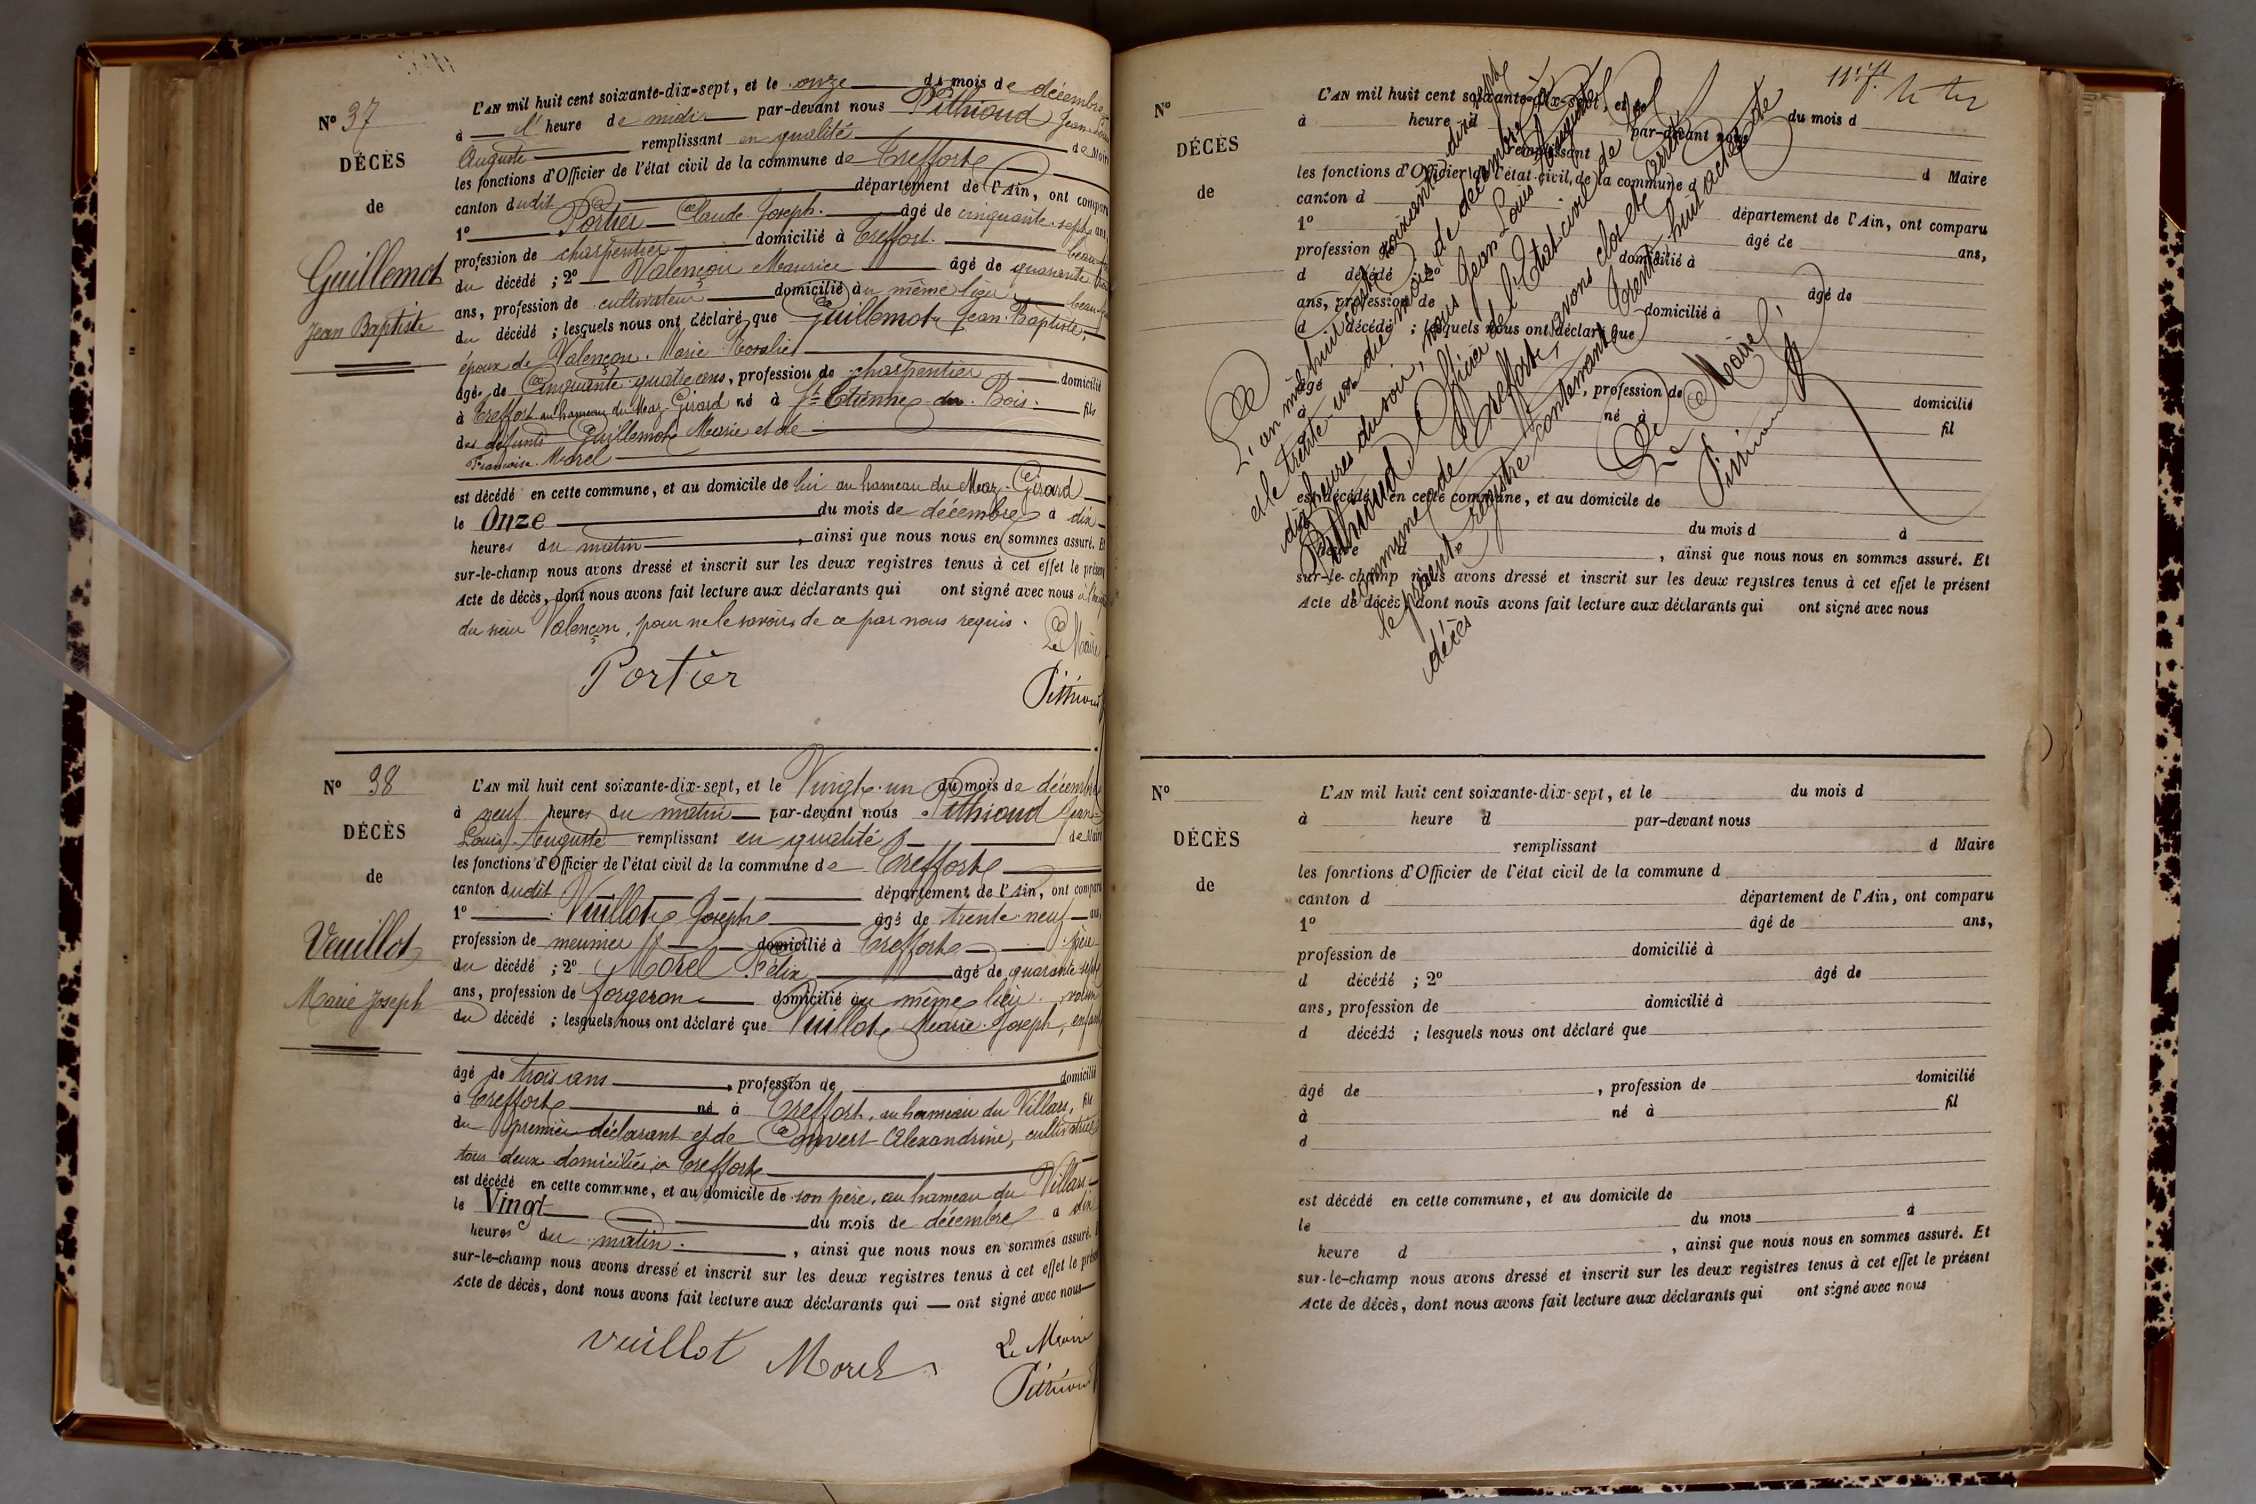 N° 37
DÉCÈS
de
Guillemot
Jean Baptiste
L'AN mil huit cent soixante-dix-sept, et le onze du mois de décembre
à l' heure de midi par-devant nous Pithioud Jean Louis
Auguste remplissant en qualité de Maire
les fonctions d'Officier de l'état civil de la commune de Treffort
canton dudit département de l'Ain, ont comparu
1° Portier Claude Joseph. âgé de cinquante-sept ans,
profession de charpentier domicilié à Treffort. beau-frère
du décédé ; 2° Valençon Maurice âgé de quarante trois
ans, profession de cultivateur domicilié au même lieu beau-frère
du décédé ; lesquels nous ont déclaré que Guillemot Jean-Baptiste,
époux de Valençon Marie Rosalie
âgé de Cinquante quatre ans, profession de charpentier domicilié
à Treffort au hameau du Maz-Girard né à St Etienne du Bois. fils
des défunts Guillemot Marie et de
Françoise Morel
est décédé en cette commune, et au domicile de lui au hameau du Maz-Girard
le Onze du mois de décembre à dix
heures du matin, ainsi que nous nous en sommes assuré. Et
sur-le-champ nous avons dressé et inscrit sur les deux registres tenus à cet effet le présent
Acte de décès, dont nous avons fait lecture aux déclarants qui ont signé avec nous
du sieur Valençon, pour ne le savoir, de ce par nous requis.
Le Maire
Portier
Pithioud
N° 38
DÉCÈS
de
Vuillot
Marie Joseph
L'AN mil huit cent soixante-dix-sept, et le Vingt-un du mois de décembre
à neuf heures du matin par-devant nous Pithioud Jean-
Louis Auguste remplissant en qualité de Maire
les fonctions d'Officier de l'état civil de la commune de Treffort
canton dudit département de l'Ain, ont comparu
1° Vuillot Joseph âgé de trente-neuf ans,
profession de meunier domicilié à Treffort père
du décédé ; 2° Morel Félix âgé de quarante-sept
ans, profession de forgeron domicilié au même lieu. voisin
du décédé ; lesquels nous ont déclaré que Vuillot Marie Joseph, enfant
âgé de trois ans, profession de domicilié
à Treffort né à Treffort, au hameau du Villars, fils
du premier déclarant et de Convert Alexandrine, cultivatrice
tous deux domiciliés à Treffort
est décédé en cette commune, et au domicile de son père, au hameau du Villars
le Vingt du mois de décembre à dix
heures du matin., ainsi que nous nous en sommes assuré. Et
sur-le-champ nous avons dressé et inscrit sur les deux registres tenus à cet effet le présent
Acte de décès, dont nous avons fait lecture aux déclarants qui — ont signé avec nous
vuillot Morel
Le Maire
Pithioud
N°
DÉCÈS
de
L'AN mil huit cent soixante-dix-sept, et le du mois d
à heure d par-devant nous
remplissant d Maire
les fonctions d'Officier de l'état civil de la commune d
canton d département de l'Ain, ont comparu
1° âgé de ans,
profession de domicilié à
d décédé ; 2° âgé de
ans, profession de domicilié à
d décédé ; lesquels nous ont déclaré que
âgé de , profession de domicilié
à né à fil
d
est décédé en cette commune, et au domicile de
du mois d à
heure d , ainsi que nous nous en sommes assuré. Et
sur-le-champ nous avons dressé et inscrit sur les deux registres tenus à cet effet le présent
Acte de décès, dont nous avons fait lecture aux déclarants qui ont signé avec nous
L'an mil huit cent soixante dix sept
et le trente-un du mois de décembre à
dix heures du soir, nous Jean Louis Auguste
Pithioud Officier de l'Etat-civil de la
commune de Treffort, avons clos et arrêté
le présent registre contenant trente huit actes de
décès
Le Maire
Pithioud
N°
DÉCÈS
de
L'AN mil huit cent soixante-dix-sept, et le du mois d
à heure d par-devant nous
remplissant d Maire
les fonctions d'Officier de l'état civil de la commune d
canton d département de l'Ain, ont comparu
1° âgé de ans,
profession de domicilié à
d décédé ; 2° âgé de
ans, profession de domicilié à
d décédé ; lesquels nous ont déclaré que
âgé de , profession de domicilié
à né à fil
d
est décédé en cette commune, et au domicile de
le du mois à
heure d , ainsi que nous nous en sommes assuré. Et
sur-le-champ nous avons dressé et inscrit sur les deux registres tenus à cet effet le présent
Acte de décès, dont nous avons fait lecture aux déclarants qui ont signé avec nous